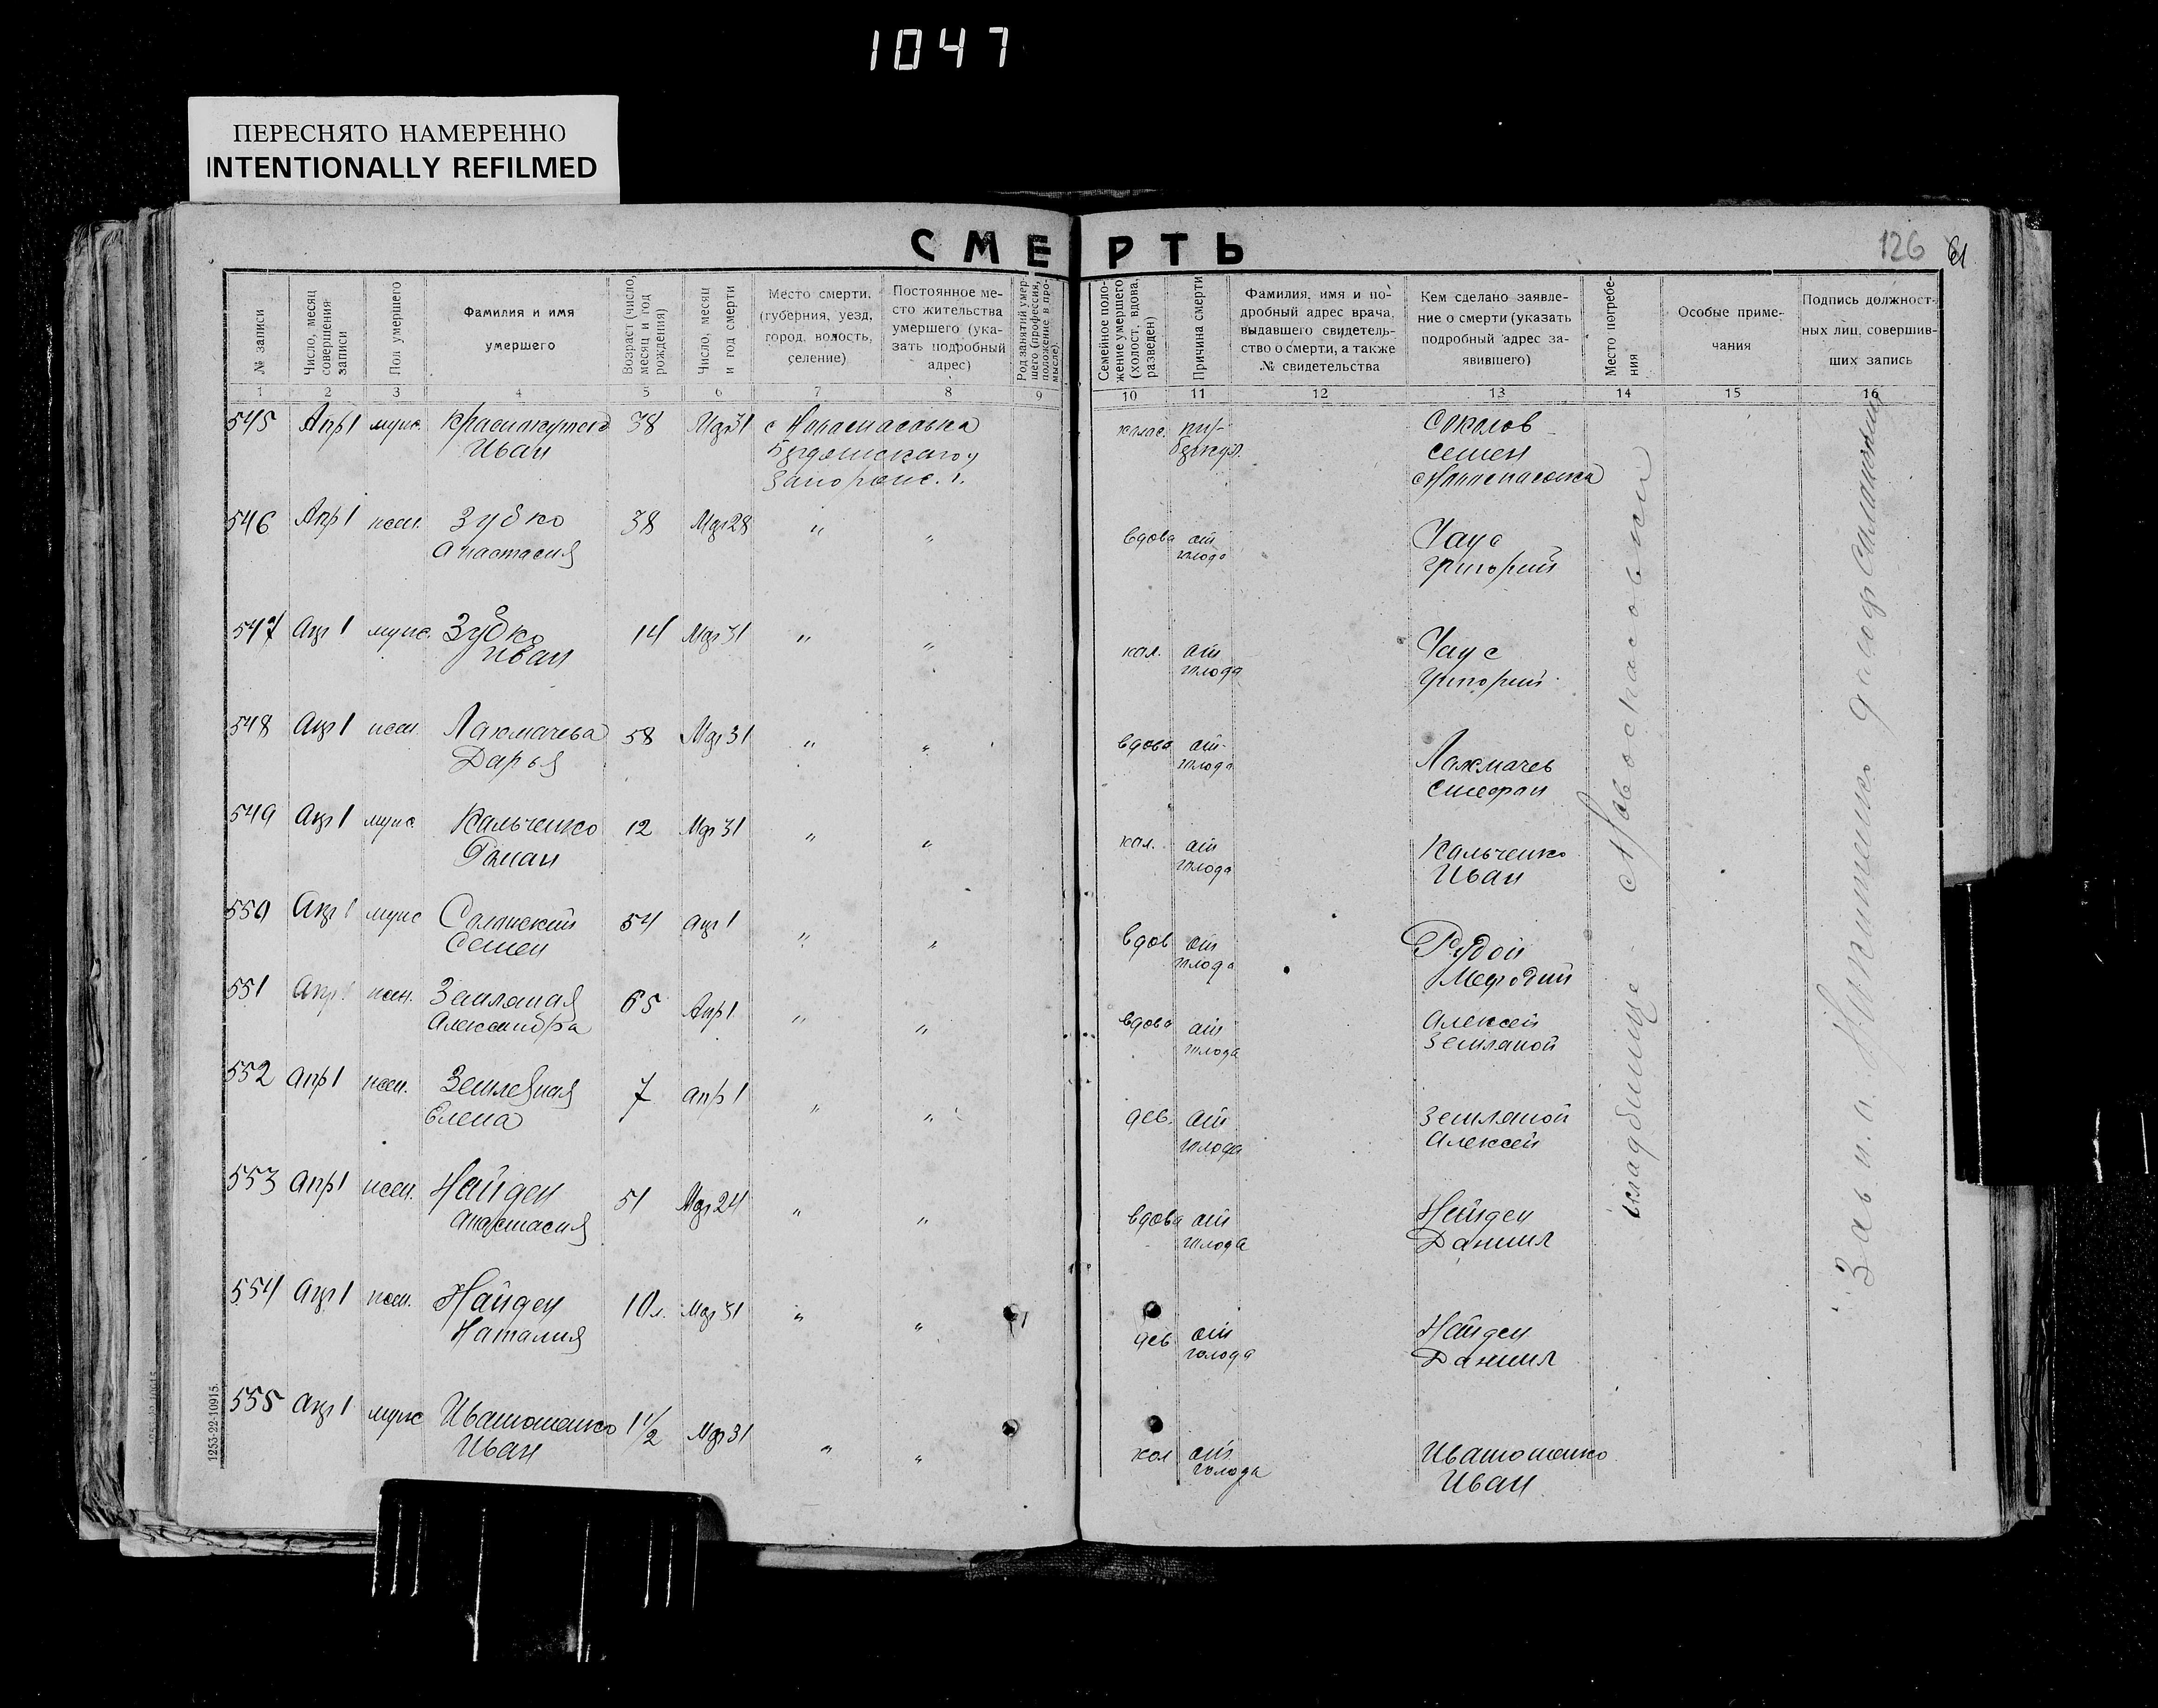 1047
ПЕРЕСНЯТО НАМЕРЕННО
INTENTIONALLY REFILMED
СМЕРТЬ
126
61
№ записи
Число, месяц совершения записи
Пол умершего
Фамилия и имя умершего
Возраст (число, месяц и год рождения)
Число, месяц и год смерти
Место смерти. (губерния, уезд, город, волость, селение)
Постоянное место жительства умершего (указать подробный адрес)
Род занятий умершего (профессия, положение в промысле).
Семейное положение умершего (холост, вдова, разведен)
Причина смерти
Фамилия, имя и подробный адрес врача, выдавшего свидетельство о смерти, а также № свидетельства
Кем сделано заявление о смерти (указать подробный адрес заявившего)
Место погребения
Особые примечания
Подпись должностных лиц, совершивших запись
1 2 3 4 5 6 7 8 9 10 11 12 13 14 15 16
545 Апр 1 муж. Иван 38 31 Соколов Семен
546 Апр 1 жен. Зубко Анастасия 38 Мар 28 " " вдова от голода Чаус Григорий
547 Апр 1 муж. Зубко Иван 14 Мар 31 " " хол. от голода Чаус Григорий
548 Апр 1 жен. Дарья 58 Мар 31 " " вдова от голода Стефан
549 Апр 1 муж. Кальченко Роман 12 Мар 31 " " хол. от голода Кальченко Иван
550 Апр 1 муж Семен 54 Апр 1 " " вдов от голода Рудой Мефодий
551 Апр 1 жен. Земляная Александра 65 Апр 1 " " вдова от голода Алексей Земляной
552 Апр 1 жен. Елена 7 апр 1 " " дев. от голода Земляной Алексей
553 Апр 1 жен. Найден Анастасия 51 Мар 24 " " вдова от голода Найден Даниил
554 Апр 1 жен. Найден Наталия 10 л. Мар 31 " " дев. от голода Найден Даниил
555 Апр 1 муж Иван 1 1/2 Мар 31 " " хол от голода Иван
кладбище
1253-22-10915.